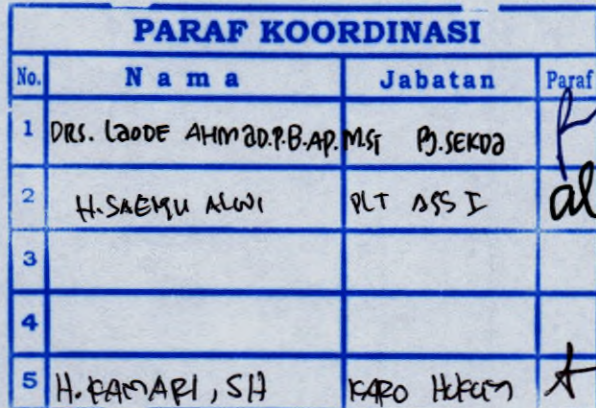 PARAF KOORDINASI
No. Nama Jabatan Paraf
1 DRS. LAODE AHMAD.P.B.AP.MSi Pj.SEKDA
2 H.SAEMU ALWI PLT ASS I
3
4
5 H. KAMARI, SH KARO HUKUM